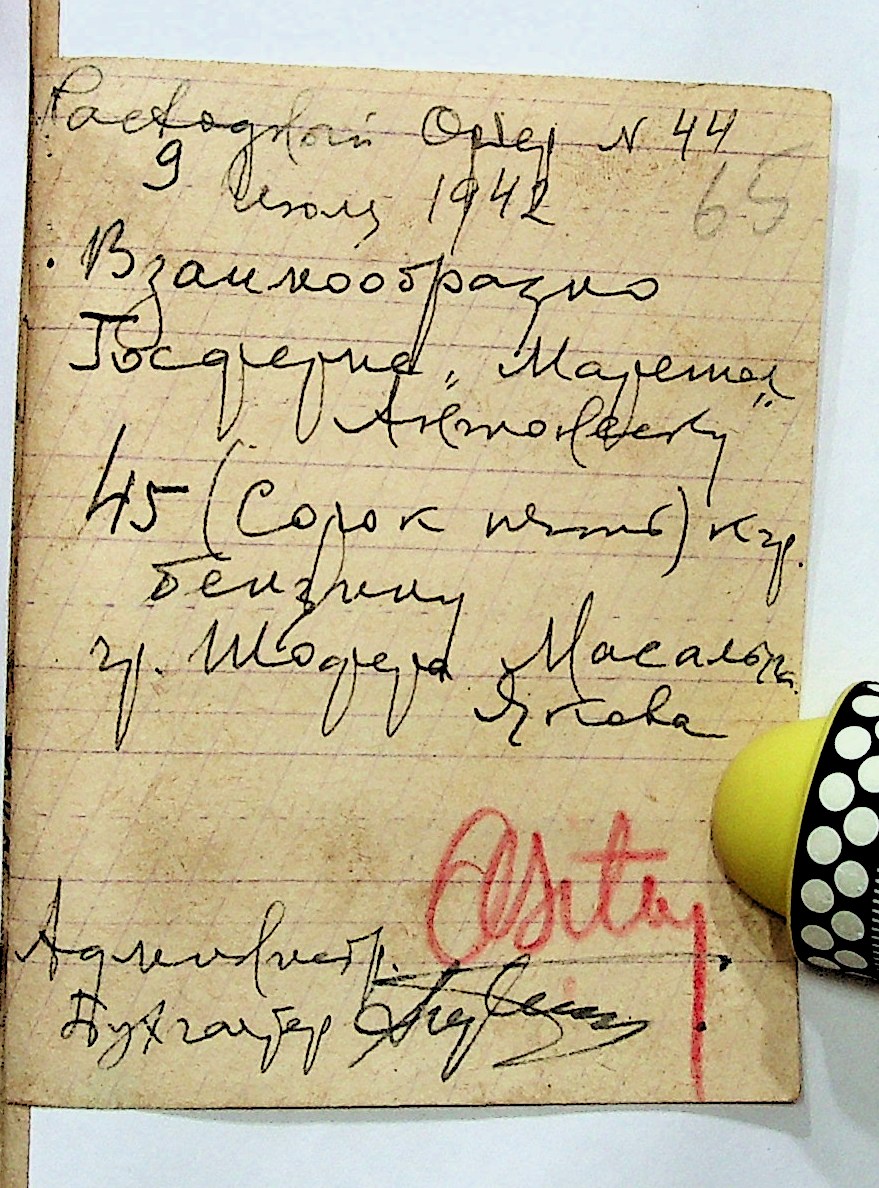 Расходный Ордер N 44
9 июля 1942
65
Взаимообразно
Госферме „Марешал
Антонеску"
45 (Сорок пять) кгр.
бензину
гр. Шофера Масальск.
Якова
Администр.
Бухгалтер